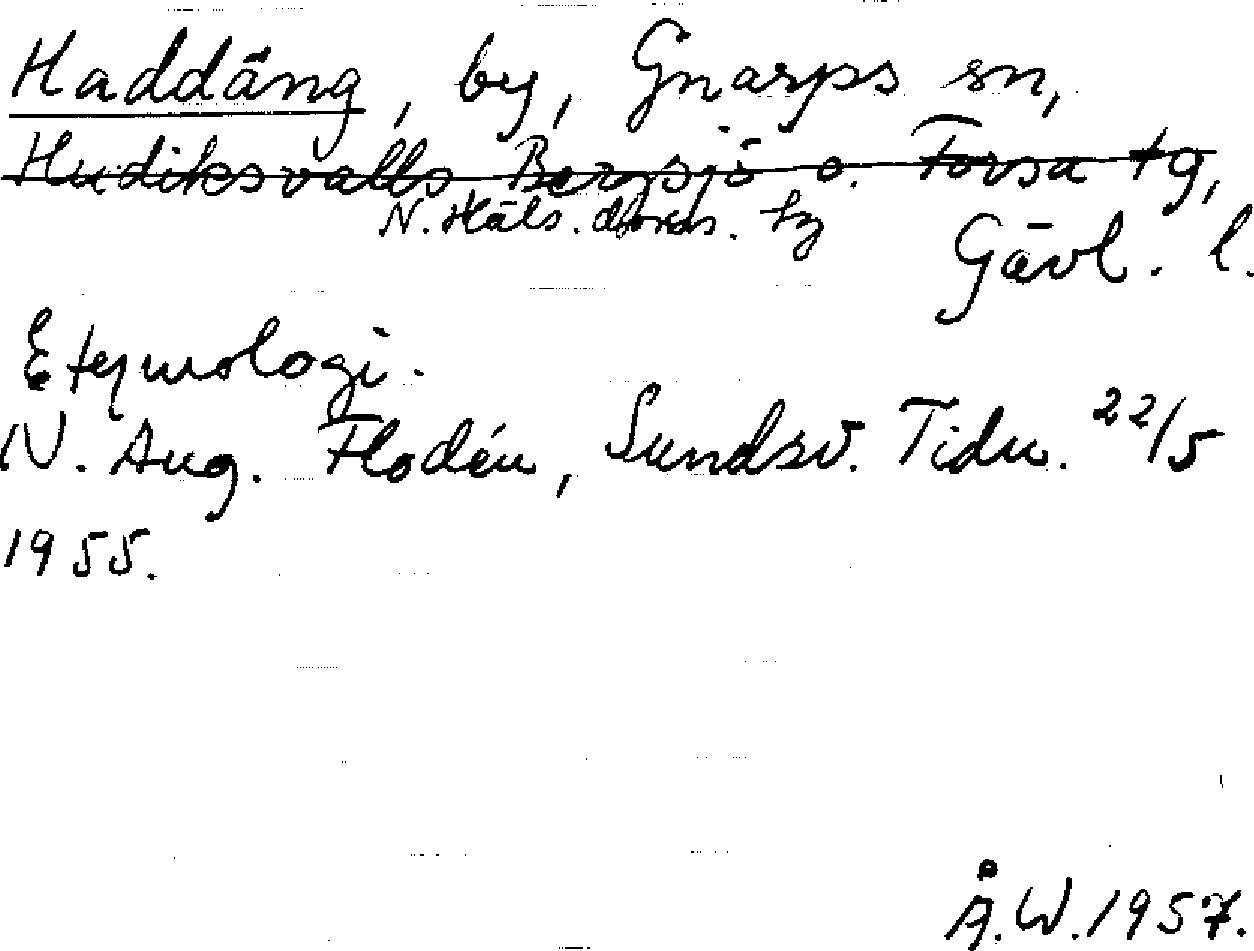 Haddäng, by, Gnarps sn,
Hudiksvalls, Bergsjö o. Forsa tg,
N. Häls. doms. tg
Gävl. l.
Etymologi.
N. Aug. Flodén, Sundsv. Tidn. 22/5
1955.
Å.W. 1957.